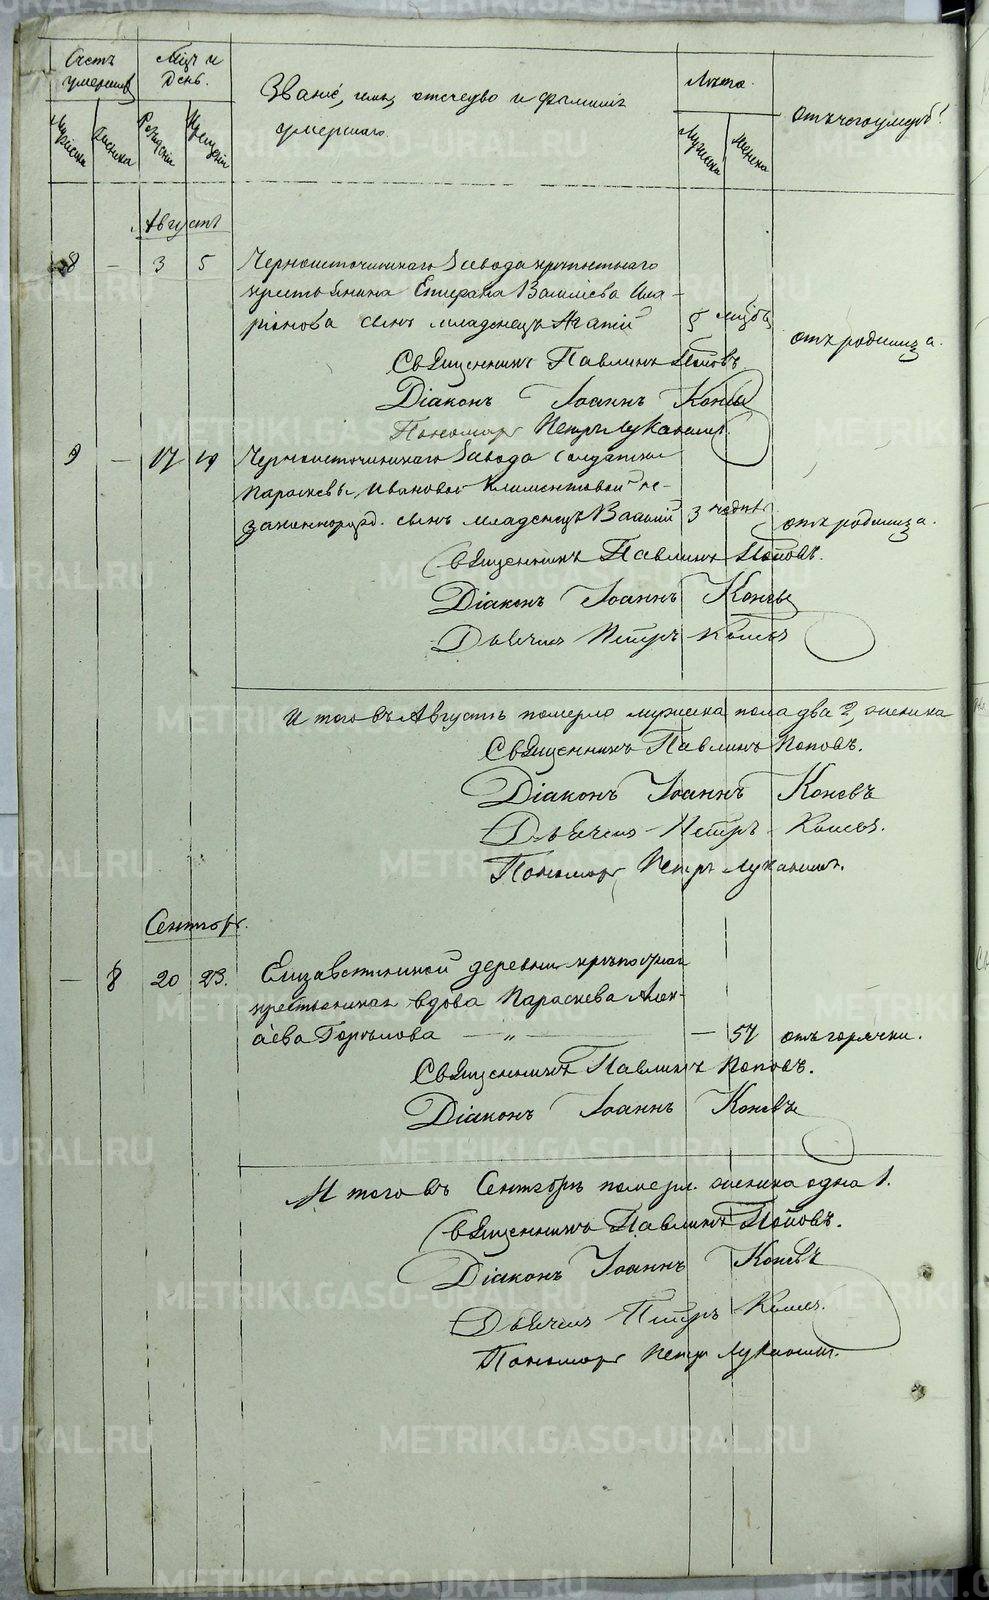 Счетъ умершихъ
Мѣс. и День.
Званіе, имя, отечество и фамилія умершаго.
Лѣта.
Отъ чего умеръ?
Мужеска
Женска
Мужеска
Женска
Августъ
8 — 3 5 Черноисточинскаго Завода крѣпостнаго
крестьянина Епифана Василіева Ила-
ріонова сынъ младенецъ
отъ родимца.
Священникъ Павлинъ Поповъ
Діаконъ Іоаннъ Коневъ
Пономарь Петръ Луканинъ.
9 — 17 19 Черноисточинскаго Завода солдатки
Параскевы Ивановой Климентовой не-
законнорожд. сынъ младенецъ 3 отъ родимца.
Священникъ Павлинъ Поповъ.
Діаконъ Іоаннъ Коневъ
Дьячекъ Петръ
И того въ Августѣ померло мужеска пола два 2, женска
Священникъ Павлинъ Поповъ.
Діаконъ Іоаннъ Коневъ
Дьячекъ Петръ
Пономарь Петръ Луканинъ.
Сентябрь.
— 8 20 23. Елизаветинской деревни крѣпостная
крестьянская вдова Параскева
— " — — 57 отъ горячки.
Священникъ Павлинъ Поповъ.
Діаконъ Іоаннъ Коневъ
И того въ Сентябрѣ померл. женска одна 1.
Священникъ Павлинъ Поповъ.
Діаконъ Іоаннъ Коневъ
Дьячекъ Петръ
Пономарь Петръ Луканинъ.
METRIKI.GASO-URAL.RU